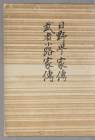 日野家傳
武者小路家傳